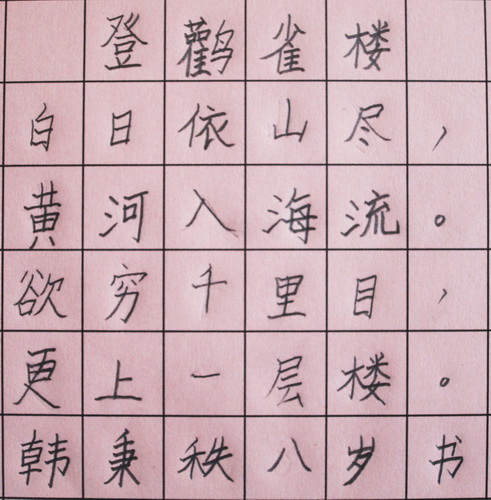 登鹳雀楼
白日依山尽，
黄河入海流。
欲穷千里目，
更上一层楼。
韩秉秩八岁书